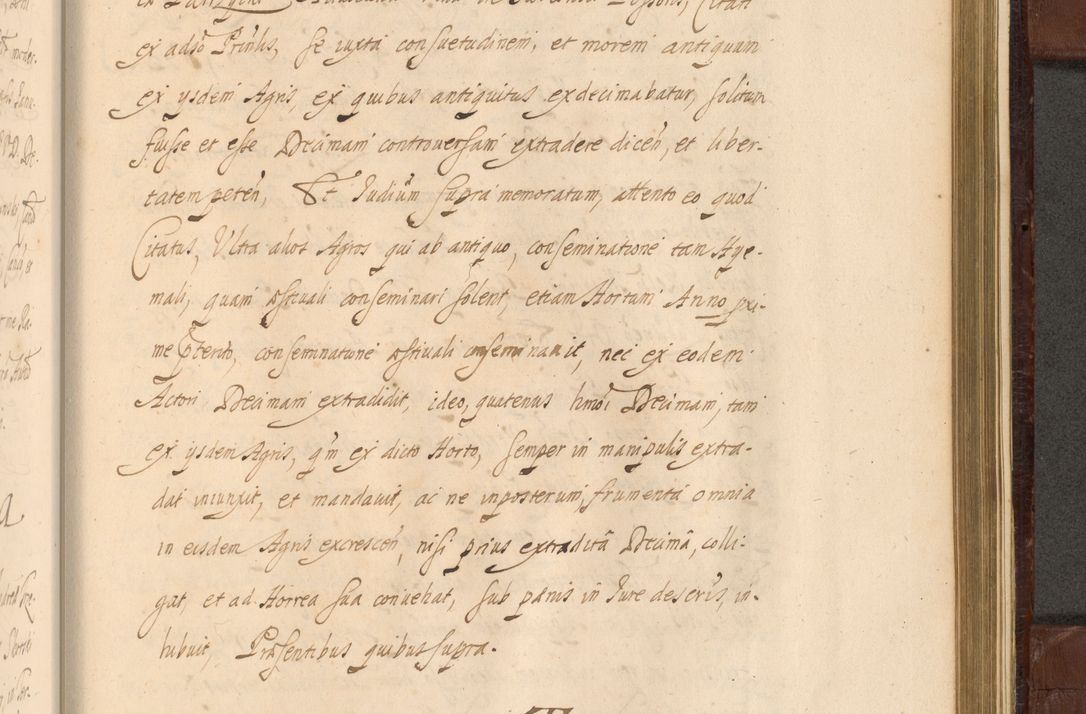 ex adsõ Prinlis, se iuxta consuetudinem, et morem antiquam
ex ysdem Agris, ex quibus antiquitus exdecimabatur, solitum
fuisse et esse Decimam controversam extradere diceñ, et liber-
tatem peteñ, Et Iudiũm supra memoratum, attento eo quod
Citatus, Ultra alios Agros qui ab antiquo, conseminatione tam Hye-
mali, quam æstivali conseminari solent, etiam Hortum Anno pxi-
me pterito, conseminatione æstivali conseminavit, nec ex eodem
Actori Decimam extradidit, ideo, quatenus hmõi Decimam, tam
ex ysdem Agris, qm̃ ex dicto Horto, semper in manipulis extra-
dat iniunxit, et mandavit, ac ne inposterum, frumenta omnia
in eisdem Agris excresceñ, nisi prius extraditã Decimã, colli-
gat, et ad Horrea sua convehat, sub pænis in Iure descris, in-
hibuit, Præsentibus quibus supra.